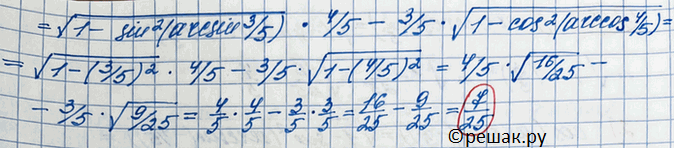 = √(1 - sin²(arcsin 3/5)) · 4/5 - 3/5 · √(1 - cos²(arccos 4/5)) =
= √(1-(3/5)²) · 4/5 - 3/5 · √(1-(4/5)²) = 4/5 · √(16/25) -
- 3/5 · √(9/25) = 4/5 · 4/5 - 3/5 · 3/5 = 16/25 - 9/25 = 7/25
©решак.ру